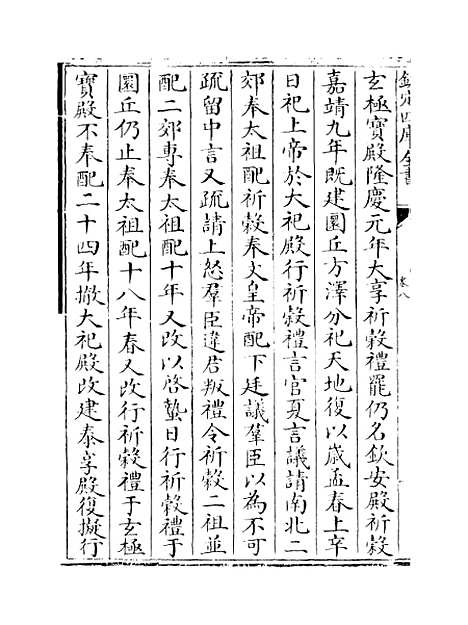 欽定四庫全書
卷八
玄極寶殿隆慶元年大享祈穀禮罷仍名欽安殿祈穀
嘉靖九年既建圜丘方澤分祀天地復以歲孟春上辛
日祀上帝於大祀殿行祈穀禮言官夏言議請南北二
郊奉太祖配祈穀奉文皇帝配下廷議羣臣以為不可
疏留中言又疏請上怒羣臣違君叛禮令祈穀二祖並
配二郊專奉太祖配十年又改以啓蟄日行祈穀禮于
圜丘仍止奉太祖配十八年春又改行祈穀禮于玄極
寶殿不奉配二十四年撤大祀殿改建泰享殿復擬行